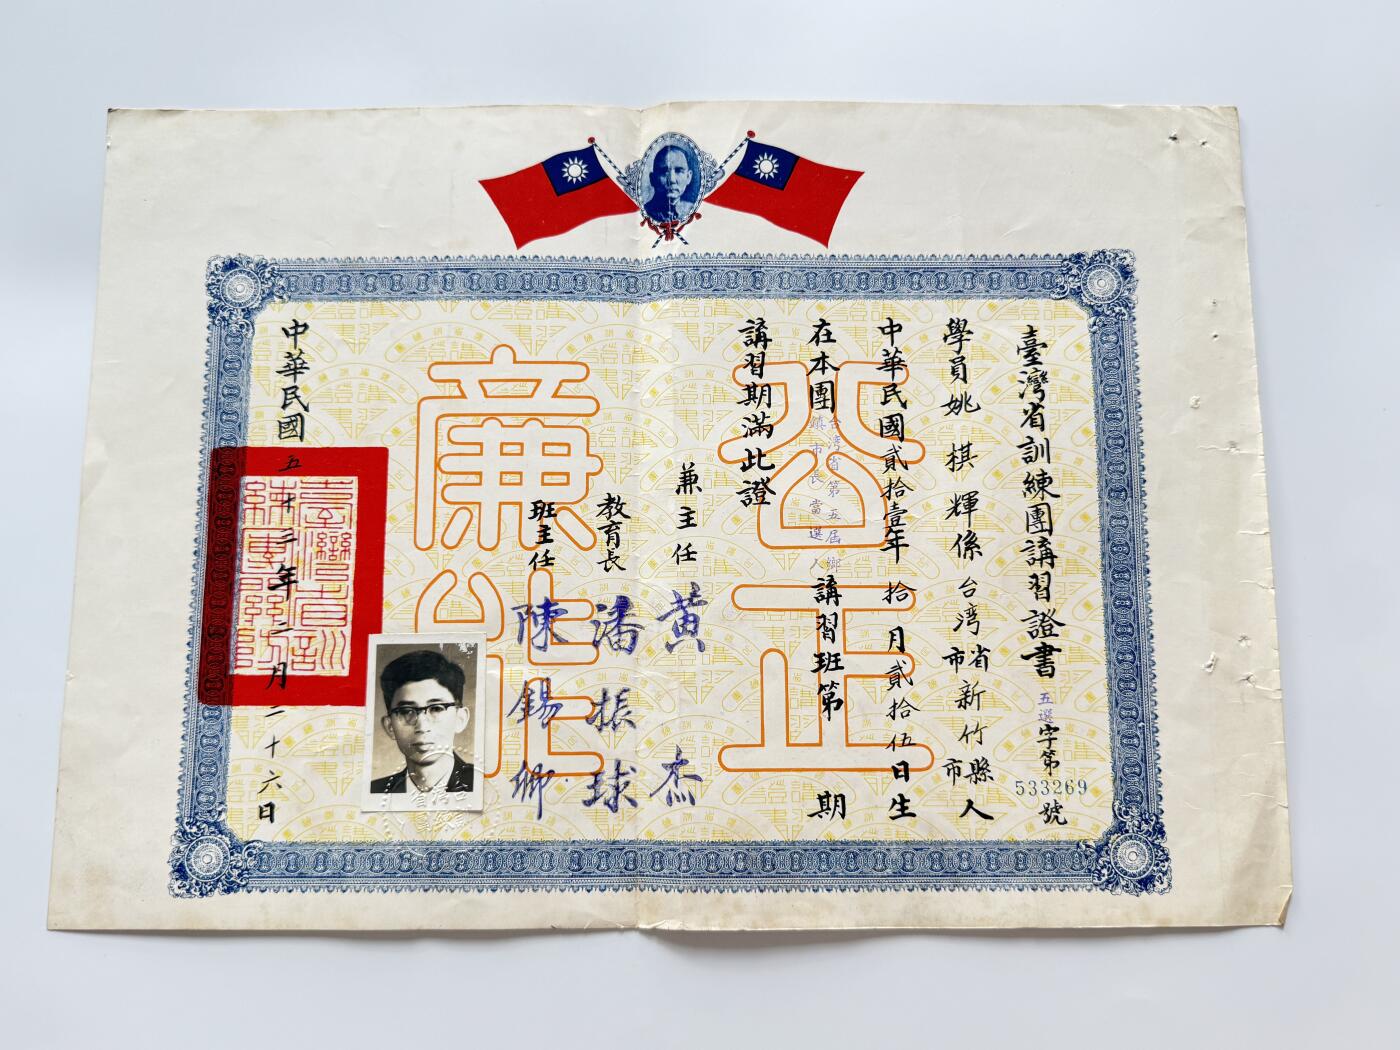 臺灣省訓練團講習證書
五選字第533269號
學員姚棋輝係台湾省新竹縣市市人
中華民國貳拾壹年拾月貳拾伍日生
在本團台湾省第五屆鄉鎮市長當選人講習班第期
講習期滿此證
兼主任黃杰
教育長潘振球
班主任陳錫卿
中華民國五十三年二月二十六日
公正
廉能